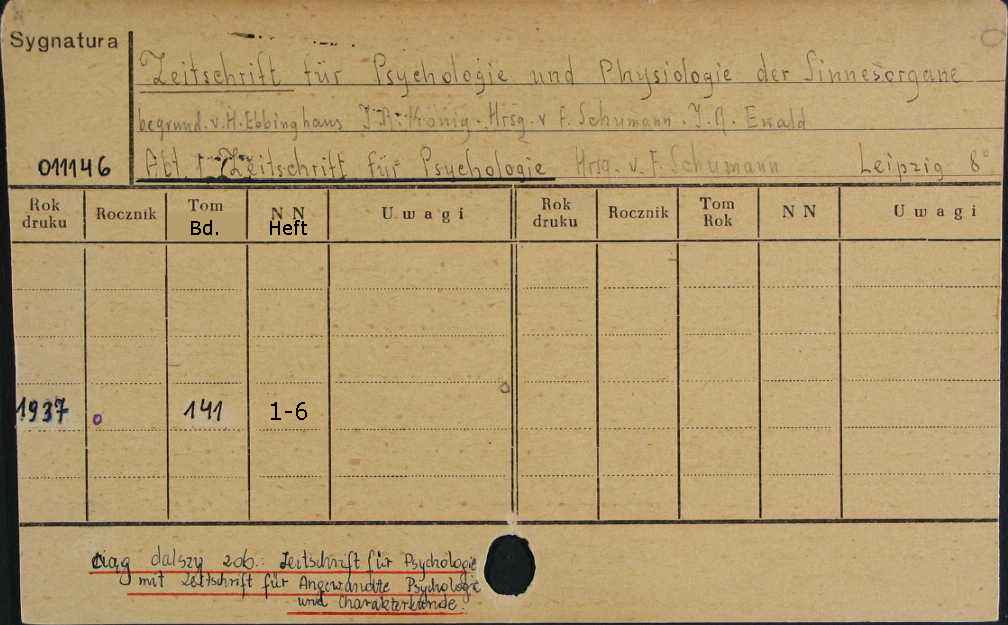 Sygnatura
Zeitschrift für Psychologie und Physiologie der Sinnesorgane
begründ. v. H. Ebbinghaus J. R. König. Hrsg. v F. Schumann. J. R. Ewald
011146 Abt. 1. Zeitschrift für Psychologie Hrsg. v. F. Schumann Leipzig 8°
Rok druku Rocznik Tom Bd. N N Heft Uwagi Rok druku Rocznik Tom Rok N N Uwagi
1937 141 1-6
ciąg dalszy zob.: Zeitschrift für Psychologie
mit Zeitschrift für Angewandte Psychologie
und Charakterkunde.